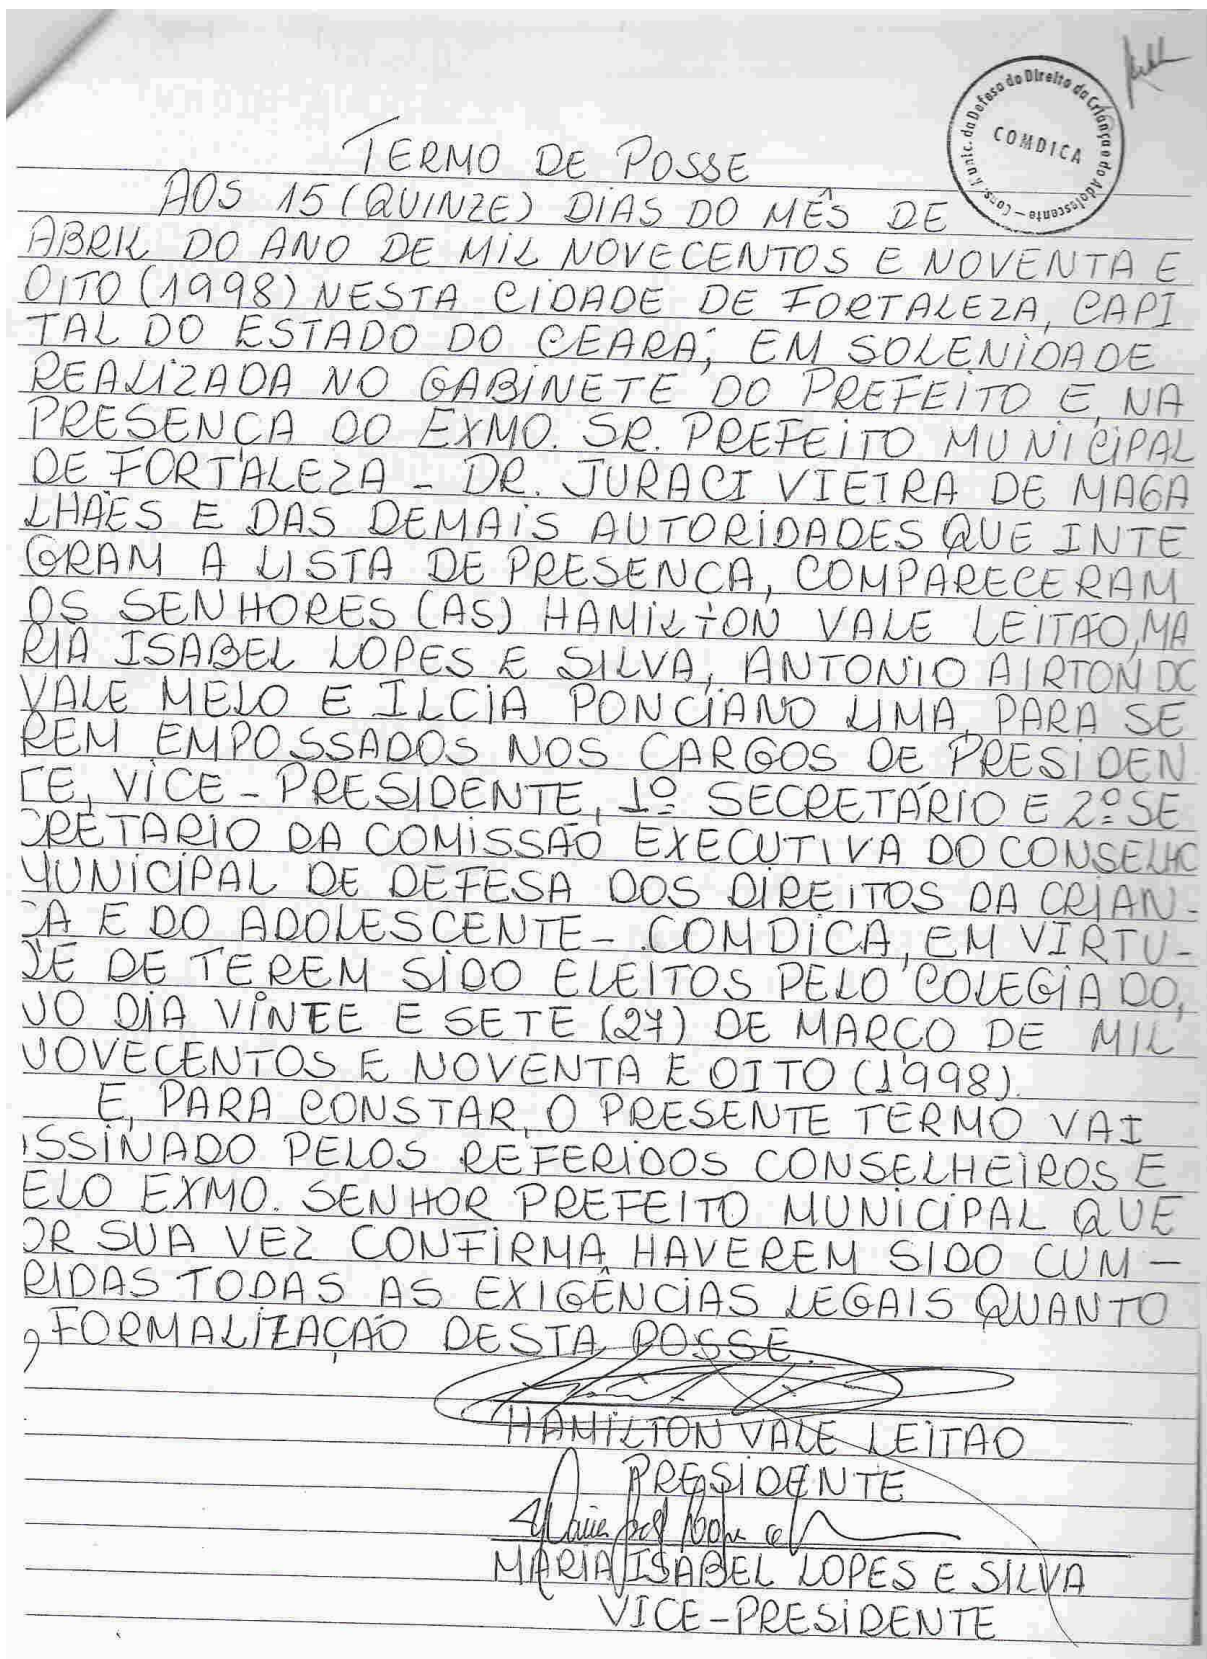 Cons. Munic. da Defesa do Direito da Criança e do Adolescente —
COMDICA
TERMO DE POSSE
AOS 15 (QUINZE) DIAS DO MÊS DE
ABRIL DO ANO DE MIL NOVECENTOS E NOVENTA E
OITO (1998) NESTA CIDADE DE FORTALEZA, CAPI
TAL DO ESTADO DO CEARÁ, EM SOLENIDADE
REALIZADA NO GABINETE DO PREFEITO E, NA
PRESENÇA DO EXMO. SR. PREFEITO MUNICIPAL
DE FORTALEZA - DR. JURACI VIEIRA DE MAGA
LHÃES E DAS DEMAIS AUTORIDADES QUE INTE
GRAM A LISTA DE PRESENÇA, COMPARECERAM
OS SENHORES (AS) HAMILTON VALE LEITÃO, MA
RIA ISABEL LOPES E SILVA, ANTONIO AIRTON DO
VALE MELO E ILCIA PONCIANO LIMA, PARA SE
REM EMPOSSADOS NOS CARGOS DE PRESIDEN
TE, VICE-PRESIDENTE, 1º SECRETÁRIO E 2º SE
CRETARIO DA COMISSÃO EXECUTIVA DO CONSELHO
MUNICIPAL DE DEFESA DOS DIREITOS DA CRIAN-
ÇA E DO ADOLESCENTE - COMDICA, EM VIRTU-
DE DE TEREM SIDO ELEITOS PELO COLEGIADO,
NO DIA VINTE E SETE (27) DE MARÇO DE MIL
NOVECENTOS E NOVENTA E OITO (1998).
E, PARA CONSTAR, O PRESENTE TERMO VAI
ASSINADO PELOS REFERIDOS CONSELHEIROS E
ELO EXMO. SENHOR PREFEITO MUNICIPAL QUE
OR SUA VEZ CONFIRMA HAVEREM SIDO CUM-
RIDAS TODAS AS EXIGÊNCIAS LEGAIS QUANTO
FORMALIZAÇÃO DESTA POSSE.
HAMILTON VALE LEITAO
PRESIDENTE
MARIA ISABEL LOPES E SILVA
VICE-PRESIDENTE